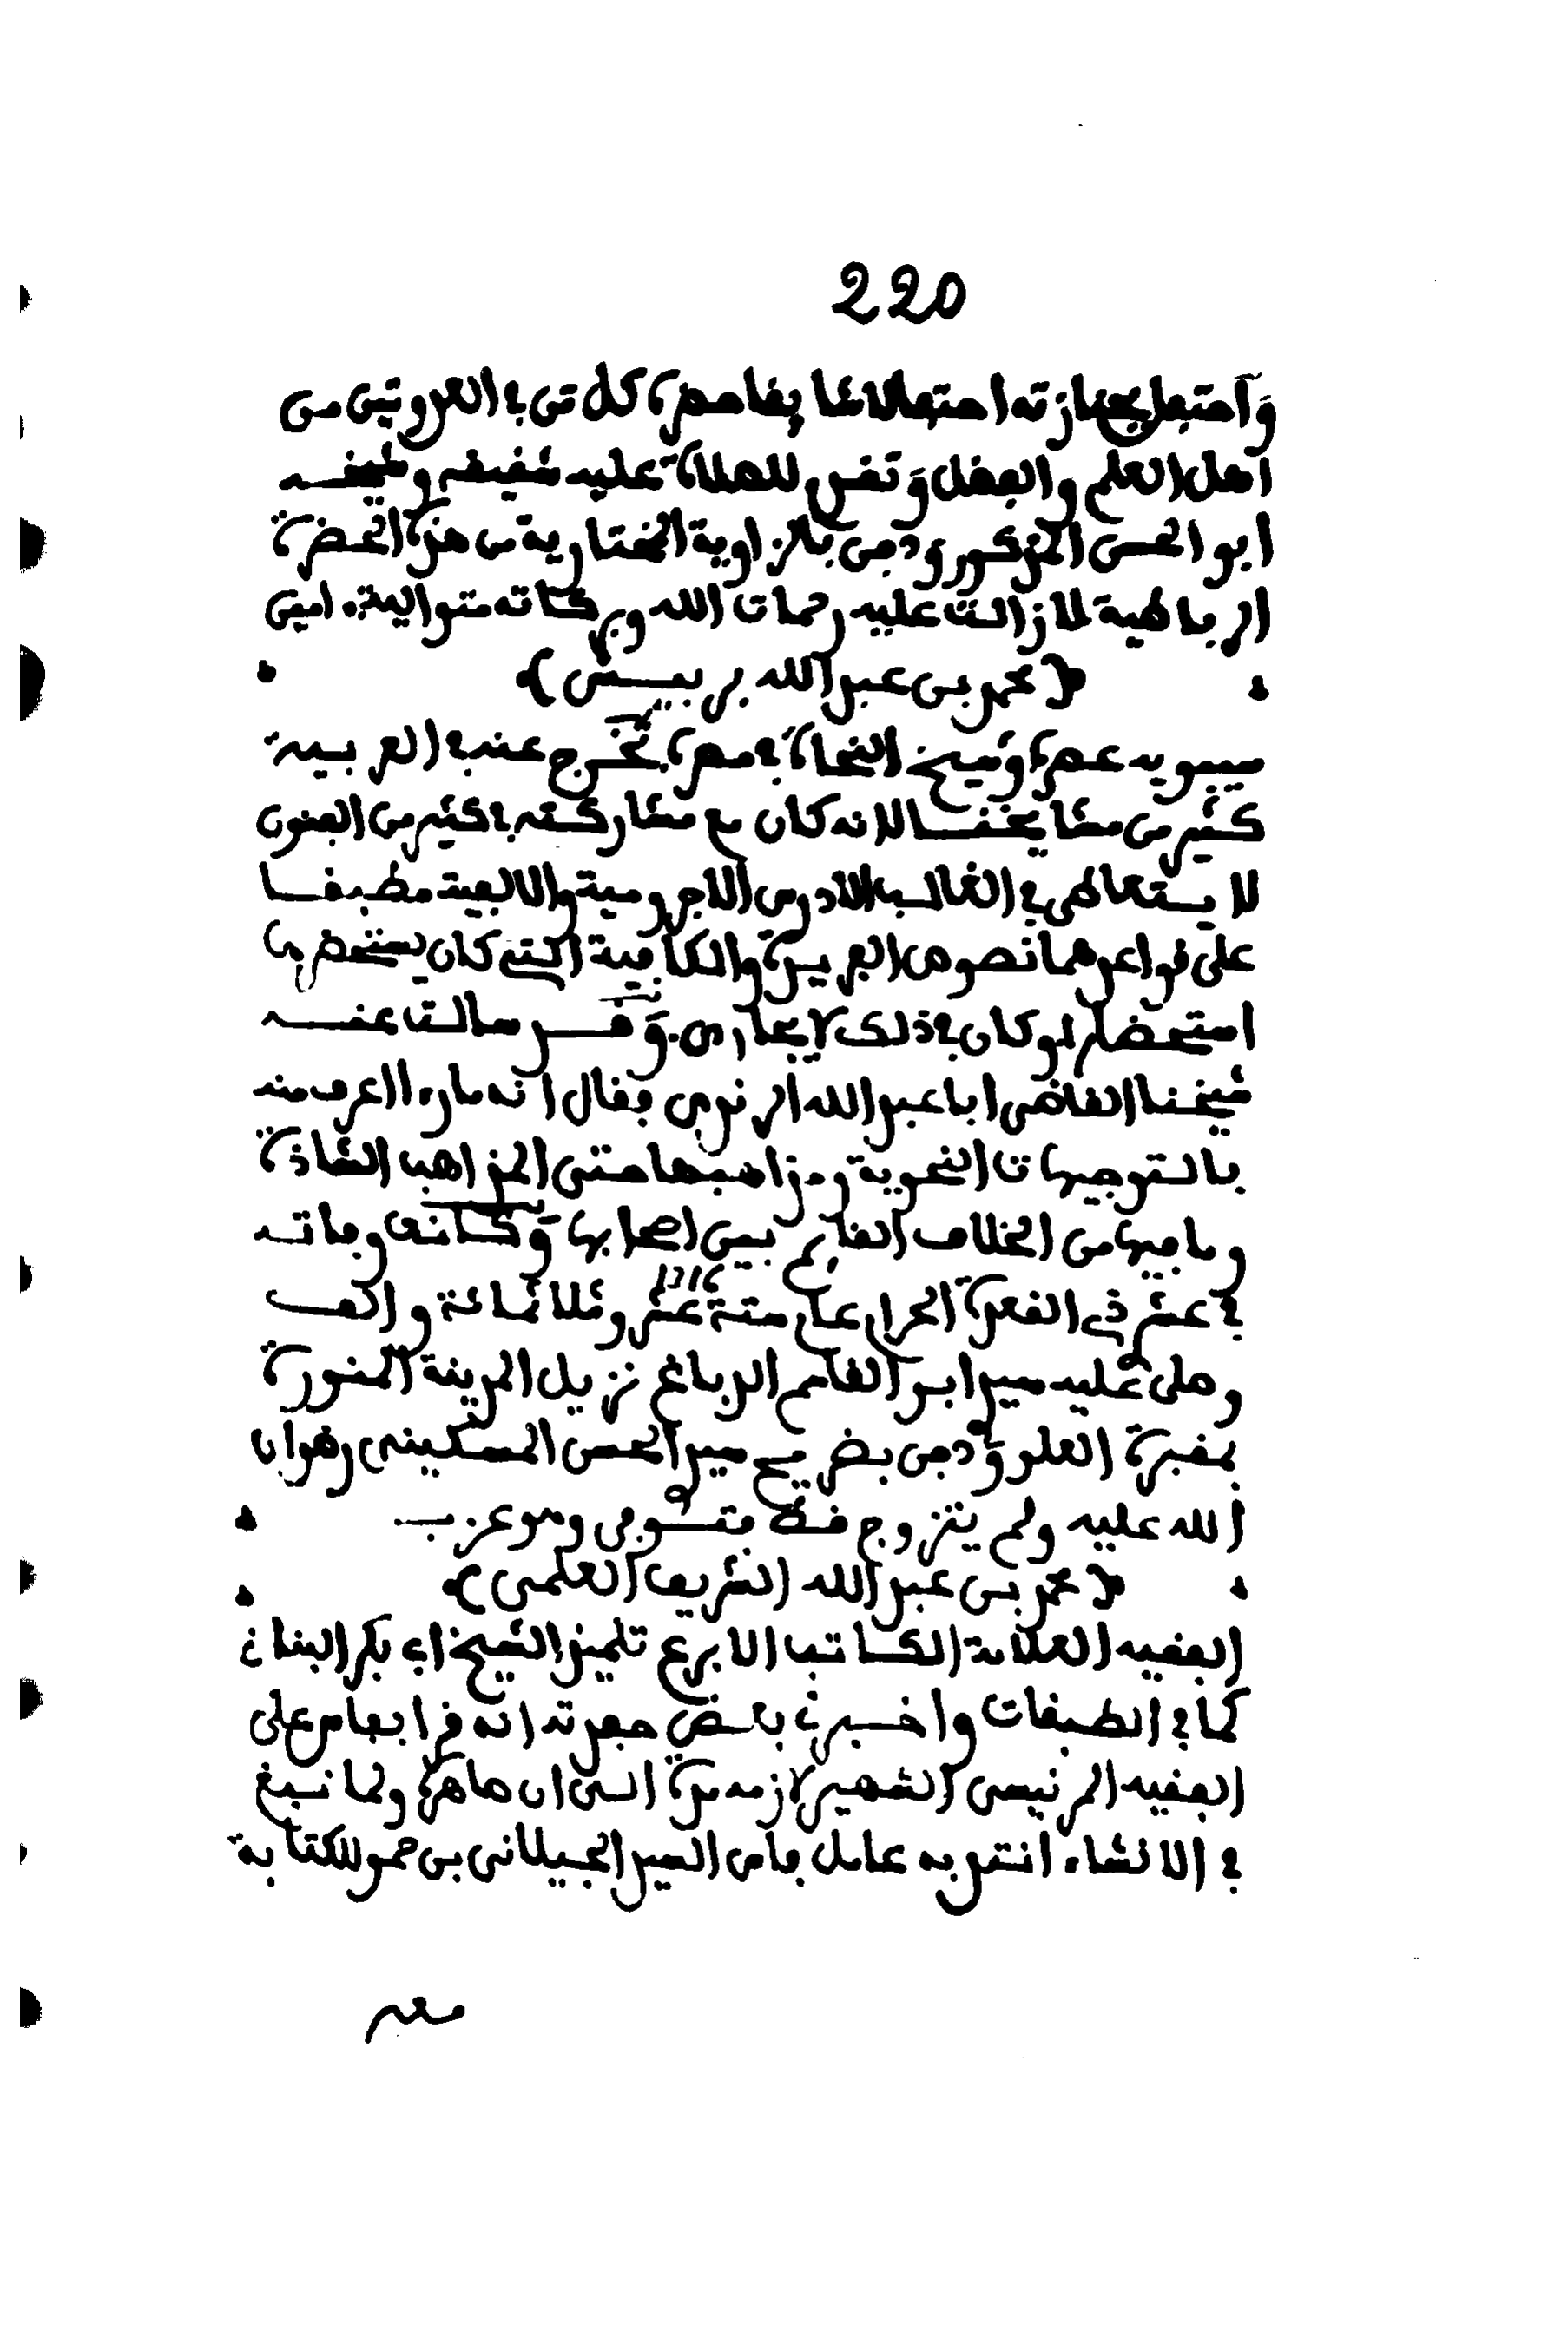 220
واحتفل بجنازته احتفالا عما يفاصره كل من في العدوتين من
اهل العلم والفضل وتقدم للصلاة عليه شقيقه وضيفه
ابو الحسن المذكور ودفن بالزاوية المختارية من هذه الحضرة
الرباطية لازالت عليه رحمات الله وبركاته متوالية. امين
{محمد بن عبد الله بربيش}
سيبويه عصره وشيخ النحاة في مصره تخرج عنه في العربية
كثير من مشايخنا الا انه كان مع مشاركته في كثير من الفنون
لا يتعاطى في الغالب الا دروس الاجرومية والالفية مطبقا
على قواعدهما نصوص الفريدة والكافية التي كان يستحضرها
استحضارا وكان في ذلك لا يجارى. وقد سالت عنه
شيخنا القاضي ابا عبد الله الرندى فقال انه ما رءا اعرف منه
بالتوجيهات النحوية ومذاهبها حتى المذاهب الشاذة
وما فيها من الخلاف القايم بين اصحابها وكانت وفاته
في عشر ذي القعدة الحرام عام ستة عشر وثلاثمائة والف
1316
وصلى عليه سيدى ابو القاسم الدباغ نزيل المدينة المنورة
بمقبرة العلو ودفن بضريح سيدى الحسن المسكيني رضوان
الله عليه ولم يتزوج قط فتوفى وهو عزب
{محمد بن عبد الله الشريف العلمي}
الفقيه العلامة الكاتب الابرع تلميذ الشيخ ابي بكر البناني
كما في الطبقات واخبرني بعض حفدته انه قرا بفاس على
الفقيه المرنيسى الشهير لازمه مدة الى ان مهر ولما نبغ
في الانشاء انتدبه عامل فاس السيد الجيلاني بن حمو للكتابة
معه